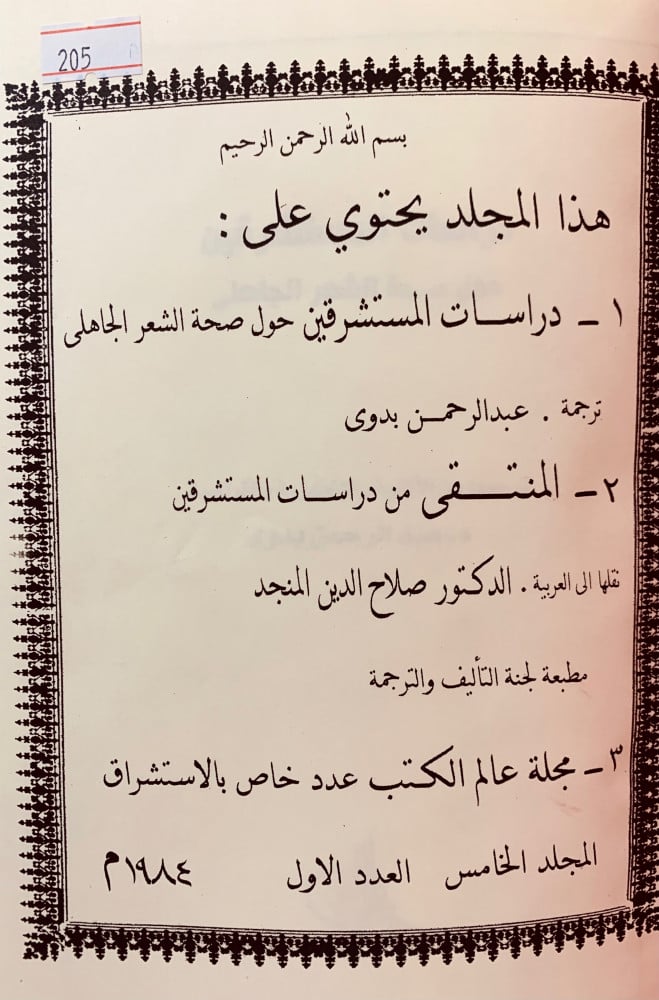 205
بسم الله الرحمن الرحيم
هذا المجلد يحتوي على :
١ - دراسات المستشرقين حول صحة الشعر الجاهلى
ترجمة . عبدالرحمن بدوى
٢ - المنتقى من دراسات المستشرقين
نقلها الى العربية . الدكتور صلاح الدين المنجد
مطبعة لجنة التأليف والترجمة
٣ - مجلة عالم الكتب عدد خاص بالاستشراق
المجلد الخامس العدد الاول ١٩٨٤م